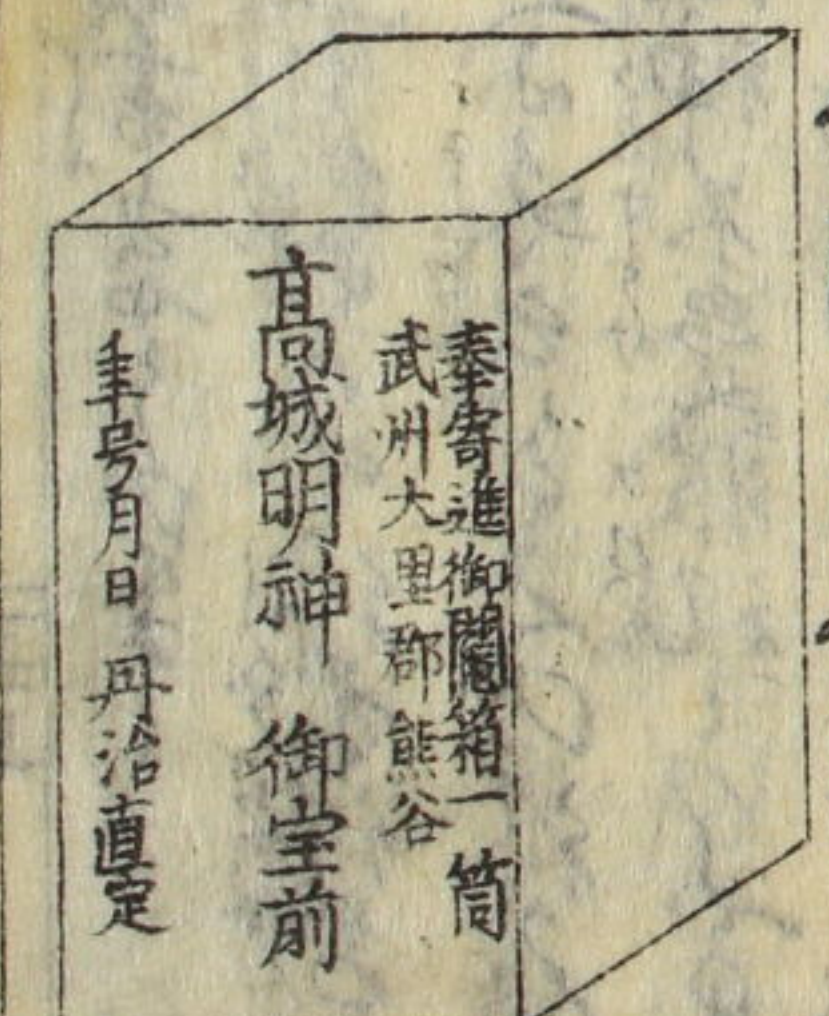 奉寄進御鬮箱一筒
武州大里郡熊谷
髙城明神　御宝前
年号月日　丹治直定